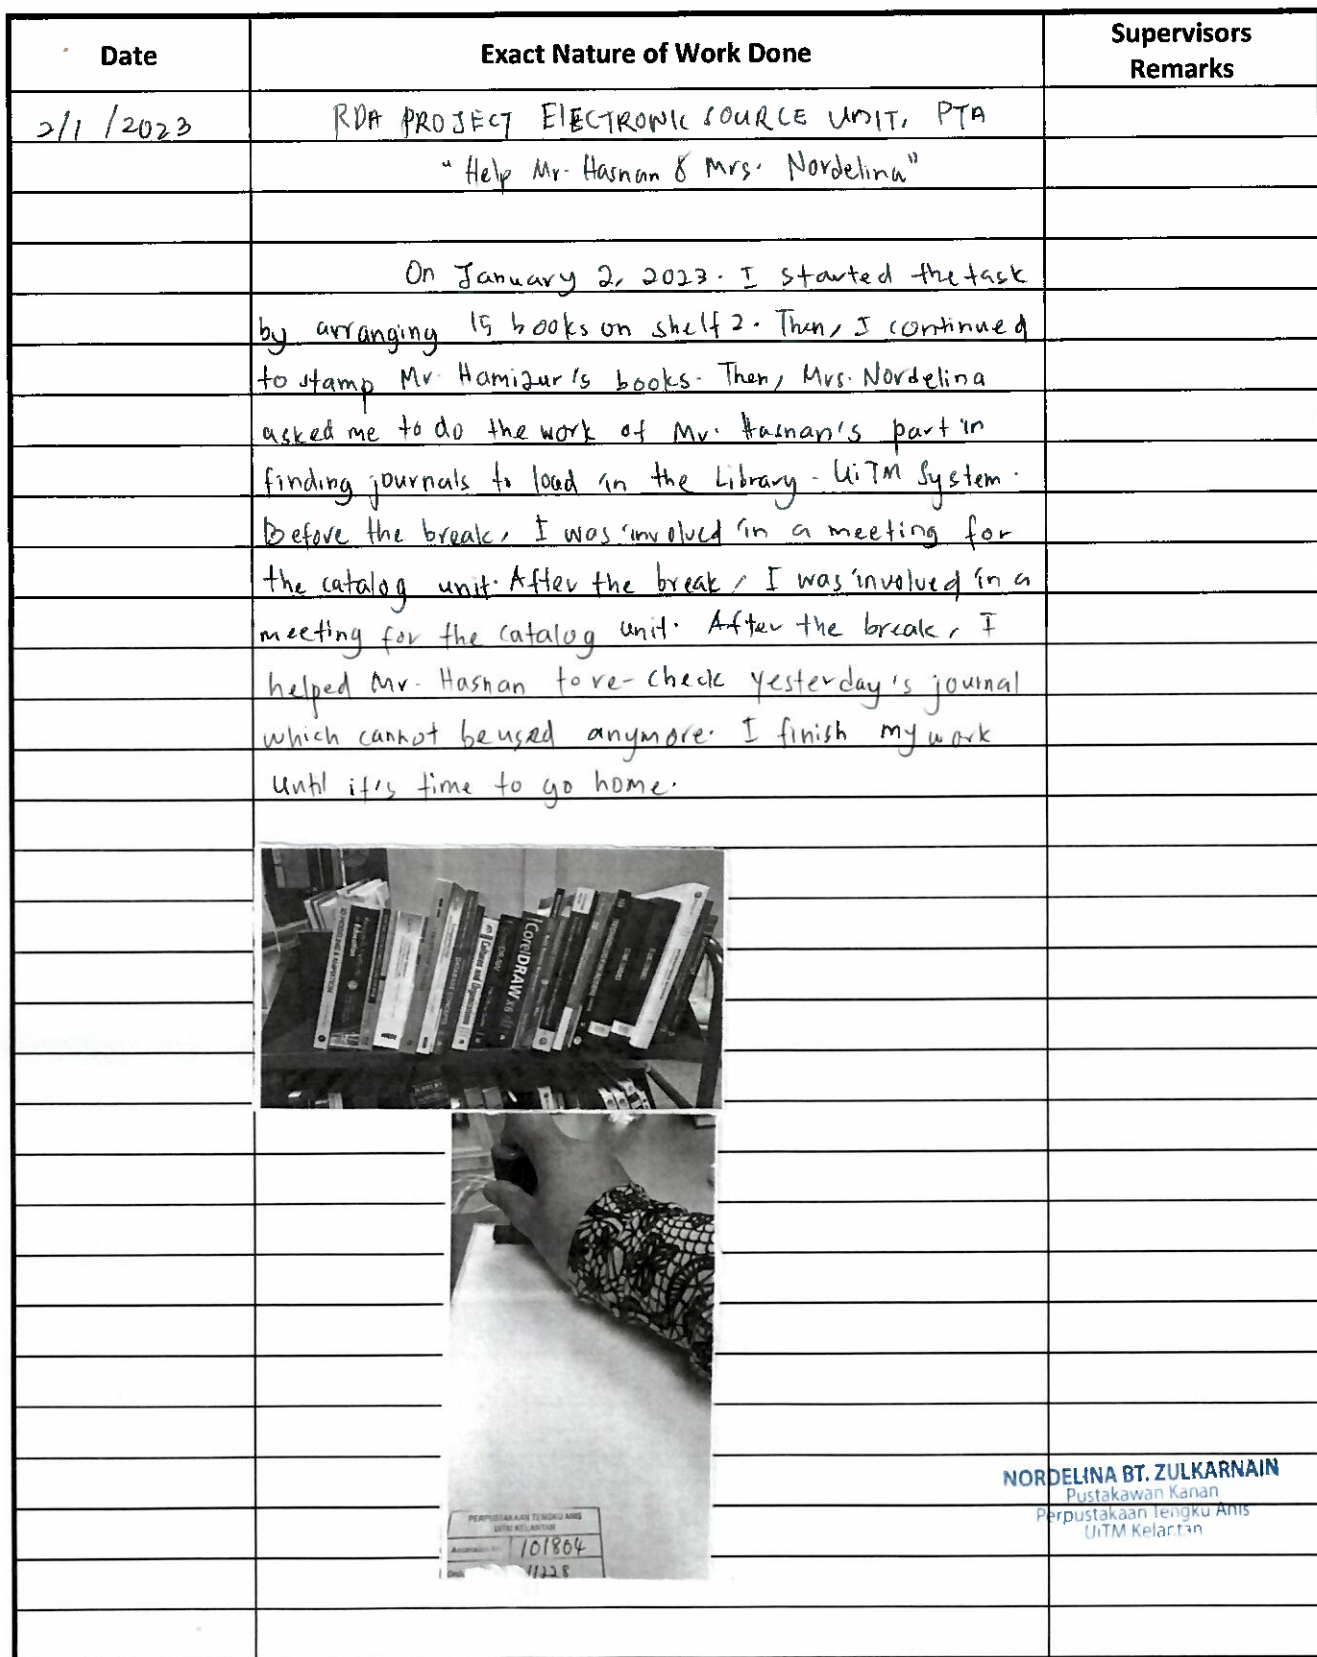 Date
Exact Nature of Work Done
Supervisors
Remarks
2/1/2023
RDA PROJECT ELECTRONIC SOURCE UNIT, PTA
"Help Mr. Hasnan & Mrs. Nordelina"
On January 2, 2023. I started the task
by arranging 15 books on shelf 2. Then, I continued
to stamp Mr. Hamizur's books. Then, Mrs. Nordelina
asked me to do the work of Mr. Hasnan's part in
finding journals to load in the Library - UiTM System.
Before the break, I was involved in a meeting for
the catalog unit. After the break, I was involved in a
meeting for the catalog unit. After the break, I
helped Mr. Hasnan to re-check yesterday's journal
which cannot be used anymore. I finish my work
until it's time to go home.
Education
Cultures and Organizations
CorelDRAW X6
PERPUSTAKAAN TENGKU ANIS
UiTM KELANTAN
101804
11228
NORDELINA BT. ZULKARNAIN
Pustakawan Kanan
Perpustakaan Tengku Anis
UiTM Kelantan